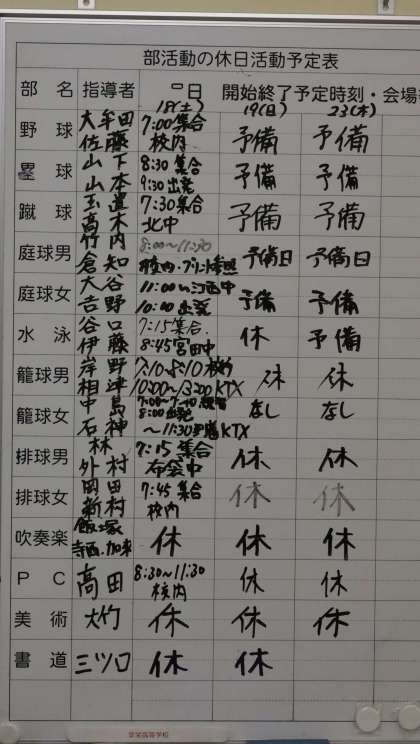 部活動の休日活動予定表
部 名 指導者 日 開始終了予定時刻・会場
18(土) 19(日) 23(木)
野 球 大牟田 佐藤 7:00集合 校内 予備 予備
塁 球 山下 山本 8:30集合 9:30出発 予備 予備
蹴 球 玉遣 高木 7:30集合 北中 予備 予備
庭球男 竹内 倉知 8:00〜11:30 予備日 予備日
庭球女 大谷 吉野 11:00〜江西中 10:00出発 予備 予備
水 泳 谷口 伊藤 7:15集合 8:45宮田中 休 予備
籠球男 岸野 相津 7:10〜8:10 10:00〜13:00 KTX 休 休
籠球女 中島 石神 8:00出発 〜11:30 KTX なし なし
排球男 林 外村 7:15集合 布袋中 休 休
排球女 岡田 新村 7:45集合 校内 休 休
吹奏楽 飯塚 寺西・加来 休 休 休
P C 高田 8:30〜11:30 校内 休 休
美 術 大竹 休 休 休
書 道 三ツ口 休 休